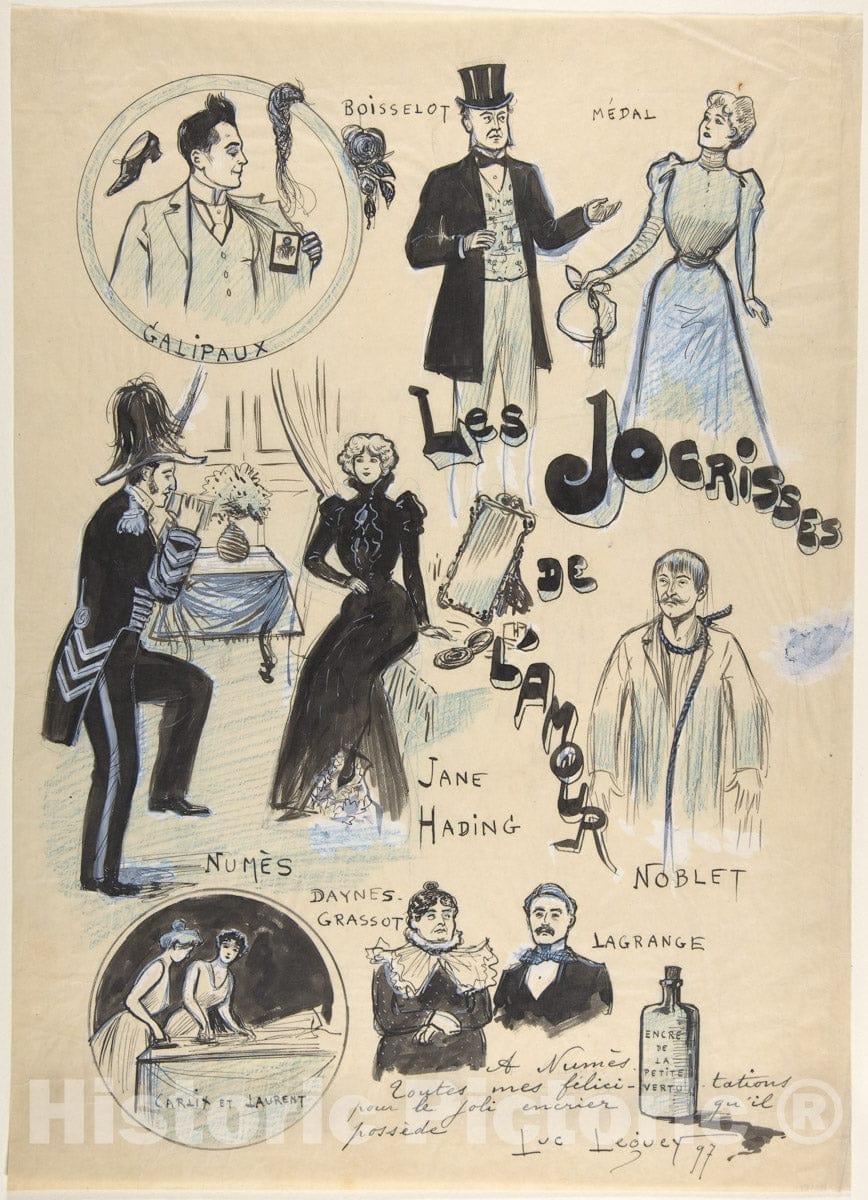 BOISSELOT
MÉDAL
GALIPAUX
Les JOCRISSES
DE
L'AMOUR
JANE
HADING
NUMÈS
NOBLET
DAYNES-
GRASSOT
LAGRANGE
ENCRE
DE
LA
PETITE
VERTU
CARLIX ET LAURENT
A Numès.
Toutes mes félici-tations
pour le joli encrier qu'il
possède
Luc Leguey 97
Historic Pictoric ®